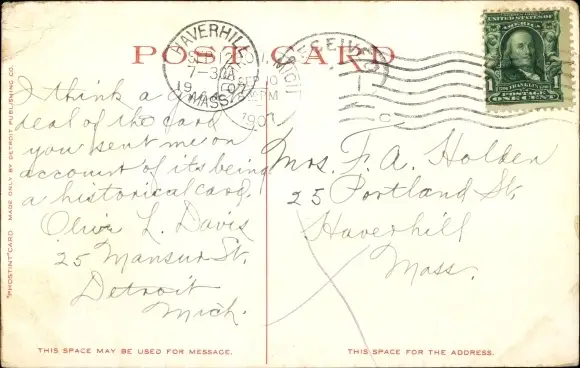 POST CARD
HAVERHILL
SEP 12
7-30A
1907
MASS.
RECEIVED
SEP 10
PM
1907
UNITED STATES OF AMERICA
1 1
POSTAGE
ONE CENT
I think a great
deal of the card
you sent me on
account of its being
a historical card.
Olive L. Davis
25 Mansur St.
Detroit
Mich.
Mrs. F. A. Holden
25 Portland St.
Haverhill
Mass.
"PHOSTINT" CARD MADE ONLY BY DETROIT PUBLISHING CO.
THIS SPACE MAY BE USED FOR MESSAGE.
THIS SPACE FOR THE ADDRESS.